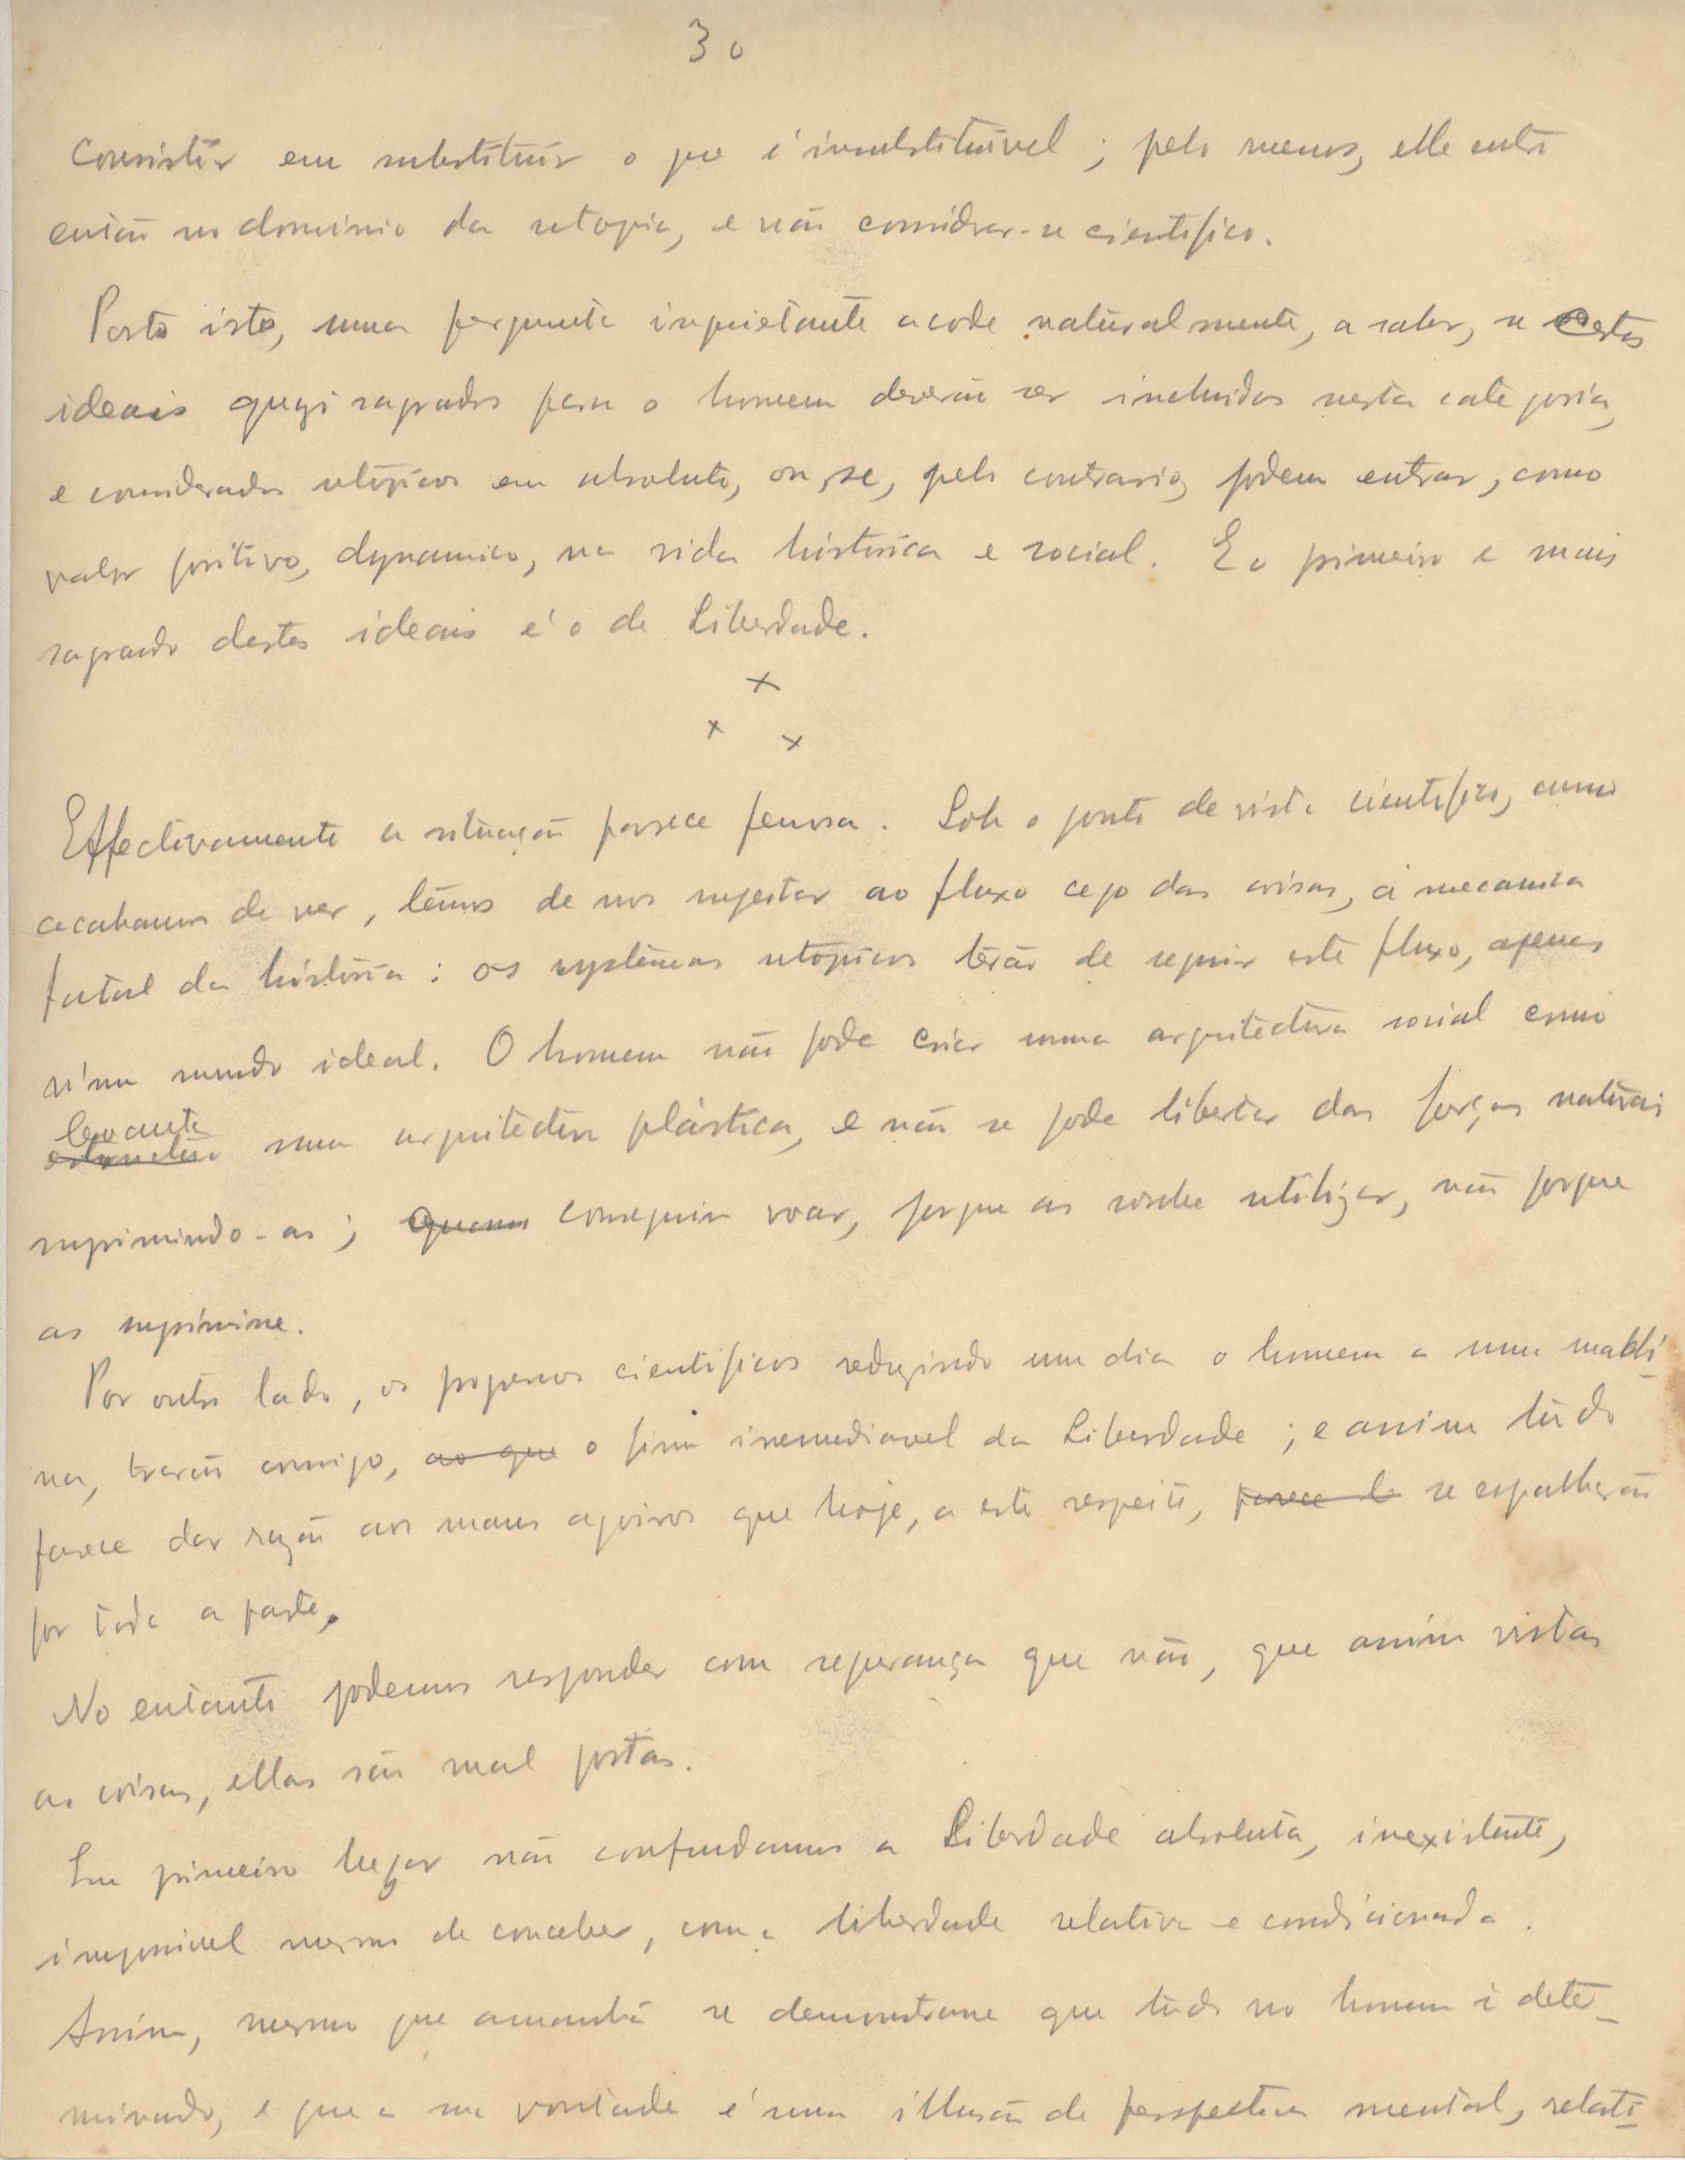 30
consistir em substituir o que é insubstituível ; pelo menos, elle entra
então no dominio da utopia, e não considerar-se cientifico.
Posto isto, uma pergunta inquietante acode naturalmente, a saber, se certos
ideais quazi sagrados para o homem deverão ser incluidos nesta categoria,
e considerados utópicos em absoluto, ou, se, pelo contrario, podem entrar, como
valor positivo, dynamico, na vida histórica e social. E o primeiro e mais
sagrado destes ideais é o de Liberdade.
x
x x
Effectivamente a situação parece penosa. Sob o ponto de vista cientifico, como
acabamos de ver, temos de nos sujeitar ao fluxo cego das coisas, á mecanica
fatal da história : os systemas utópicos terão de seguir este fluxo, apenas
n'um mundo ideal. O homem não pode criar uma arquitectura social como
levanta
uma arquitectura plástica, e não se pode libertar das forças naturais
suprimindo-as ; conseguiu voar, porque as soube utilizar, não porque
as suprimisse.
Por outro lado, os progressos cientificos reduzindo um dia o homem a uma machi-
na, trarão comsigo, ao que o fim irremediavel da Liberdade ; e assim tudo
parece dar razão aos maus agoiros que hoje, a este respeito, parece se espalharão
por toda a parte.
No entanto podemos responder com segurança que não, que assim vistas
as coisas, ellas são mal postas.
Em primeiro lugar não confundamos a Liberdade absoluta, inexistente,
impossivel mesmo de conceber, com a liberdade relativa e condicionada.
Assim, mesmo que amanhã se demonstrasse que tudo no homem é deter-
minado, e que a sua vontade é uma illusão de perspectiva mental, relati-